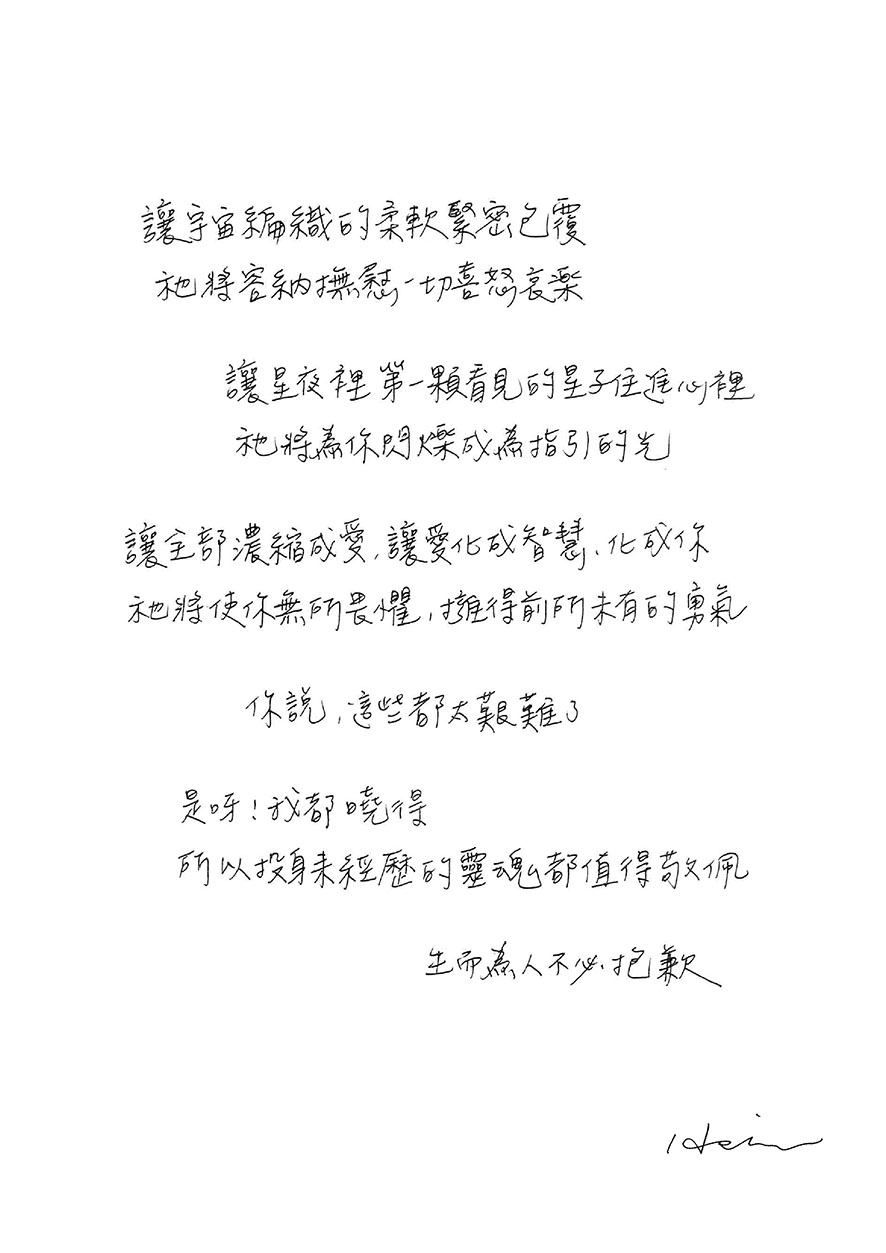 讓宇宙編織的柔軟緊密包覆
祂將容納撫慰一切喜怒哀樂
讓星夜裡第一顆看見的星子住進心裡
祂將為你閃爍成為指引的光
讓全部濃縮成愛，讓愛化成智慧、化成你
祂將使你無所畏懼，擁得前所未有的勇氣
你說，這些都太艱難了
是呀！我都曉得
所以投身來經歷的靈魂都值得敬佩
生而為人不必抱歉
Hsin